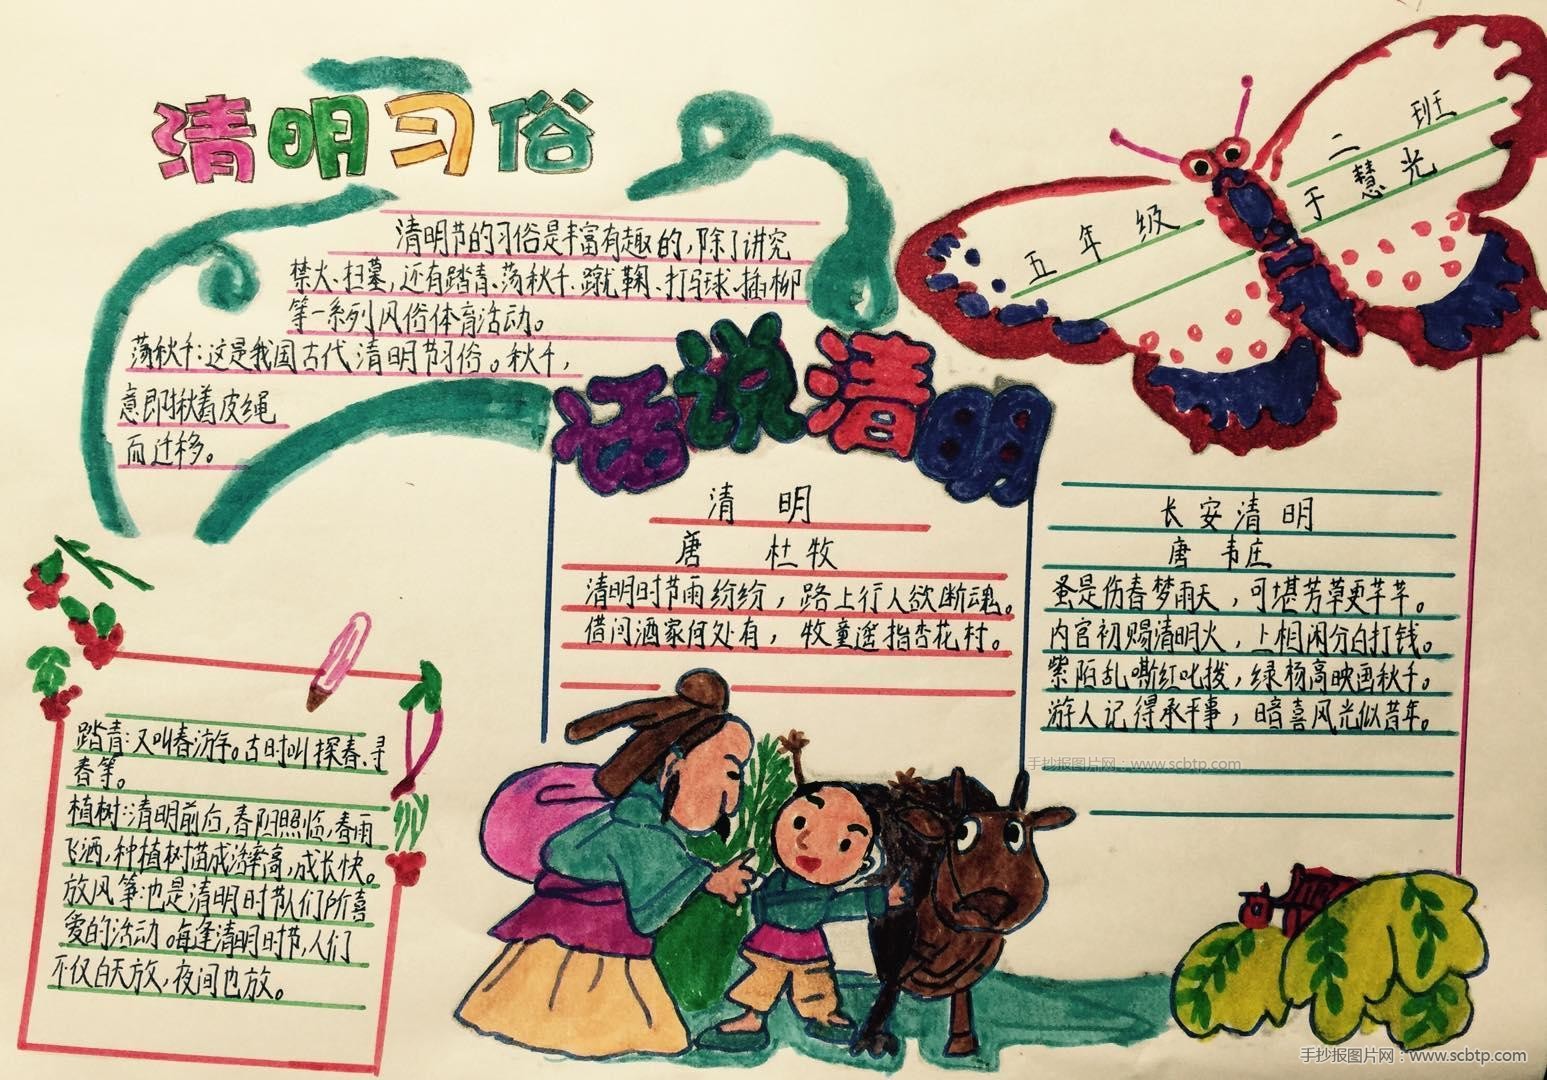 清明习俗
清明节的习俗是丰富有趣的，除了讲究
禁火、扫墓，还有踏青、荡秋千、蹴鞠、打马球、插柳
等一系列风俗体育活动。
荡秋千：这是我国古代清明节习俗。秋千，
意即揪着皮绳
而迁移。
五年级
二班
于慧光
话说清明
清 明
唐 杜牧
清明时节雨纷纷，路上行人欲断魂。
借问酒家何处有，牧童遥指杏花村。
长安清明
唐 韦庄
蚤是伤春梦雨天，可堪芳草更芊芊。
内官初赐清明火，上相闲分白打钱。
紫陌乱嘶红叱拨，绿杨高映画秋千。
游人记得承平事，暗喜风光似昔年。
踏青：又叫春游。古时叫探春、寻
春等。
植树：清明前后，春阳照临，春雨
飞洒，种植树苗成活率高，成长快。
放风筝：也是清明时节人们所喜
爱的活动。每逢清明时节，人们
不仅白天放，夜间也放。
手抄报图片网：www.scbtp.com
手抄报图片网：www.scbtp.com